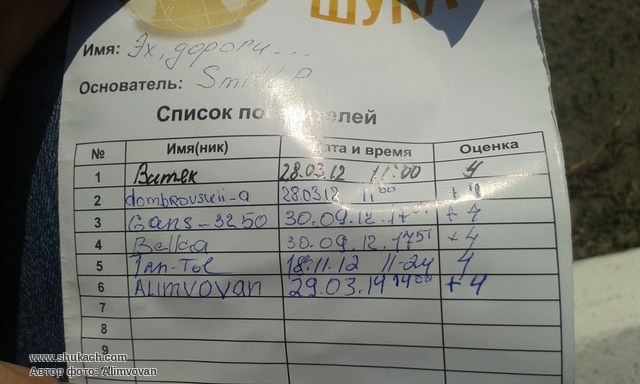 ШУКА
Имя: Эх, дороги...
Основатель:
Список
№ Имя(ник) Дата и время Оценка
1 Витек 28.03.12 11:00 4
2 dombrovskii-a 28.03.12 11 00 + 4
3 Gans-3250 30.09.12. + 4
4 Belka 30.09.12. 17 51 + 4
5 Tan-Tol 18.11.12 11-24 4
6 Alimvovan 29.03.14 14 00 + 4
7
8
9
www.shukach.com
Автор фото: Alimvovan